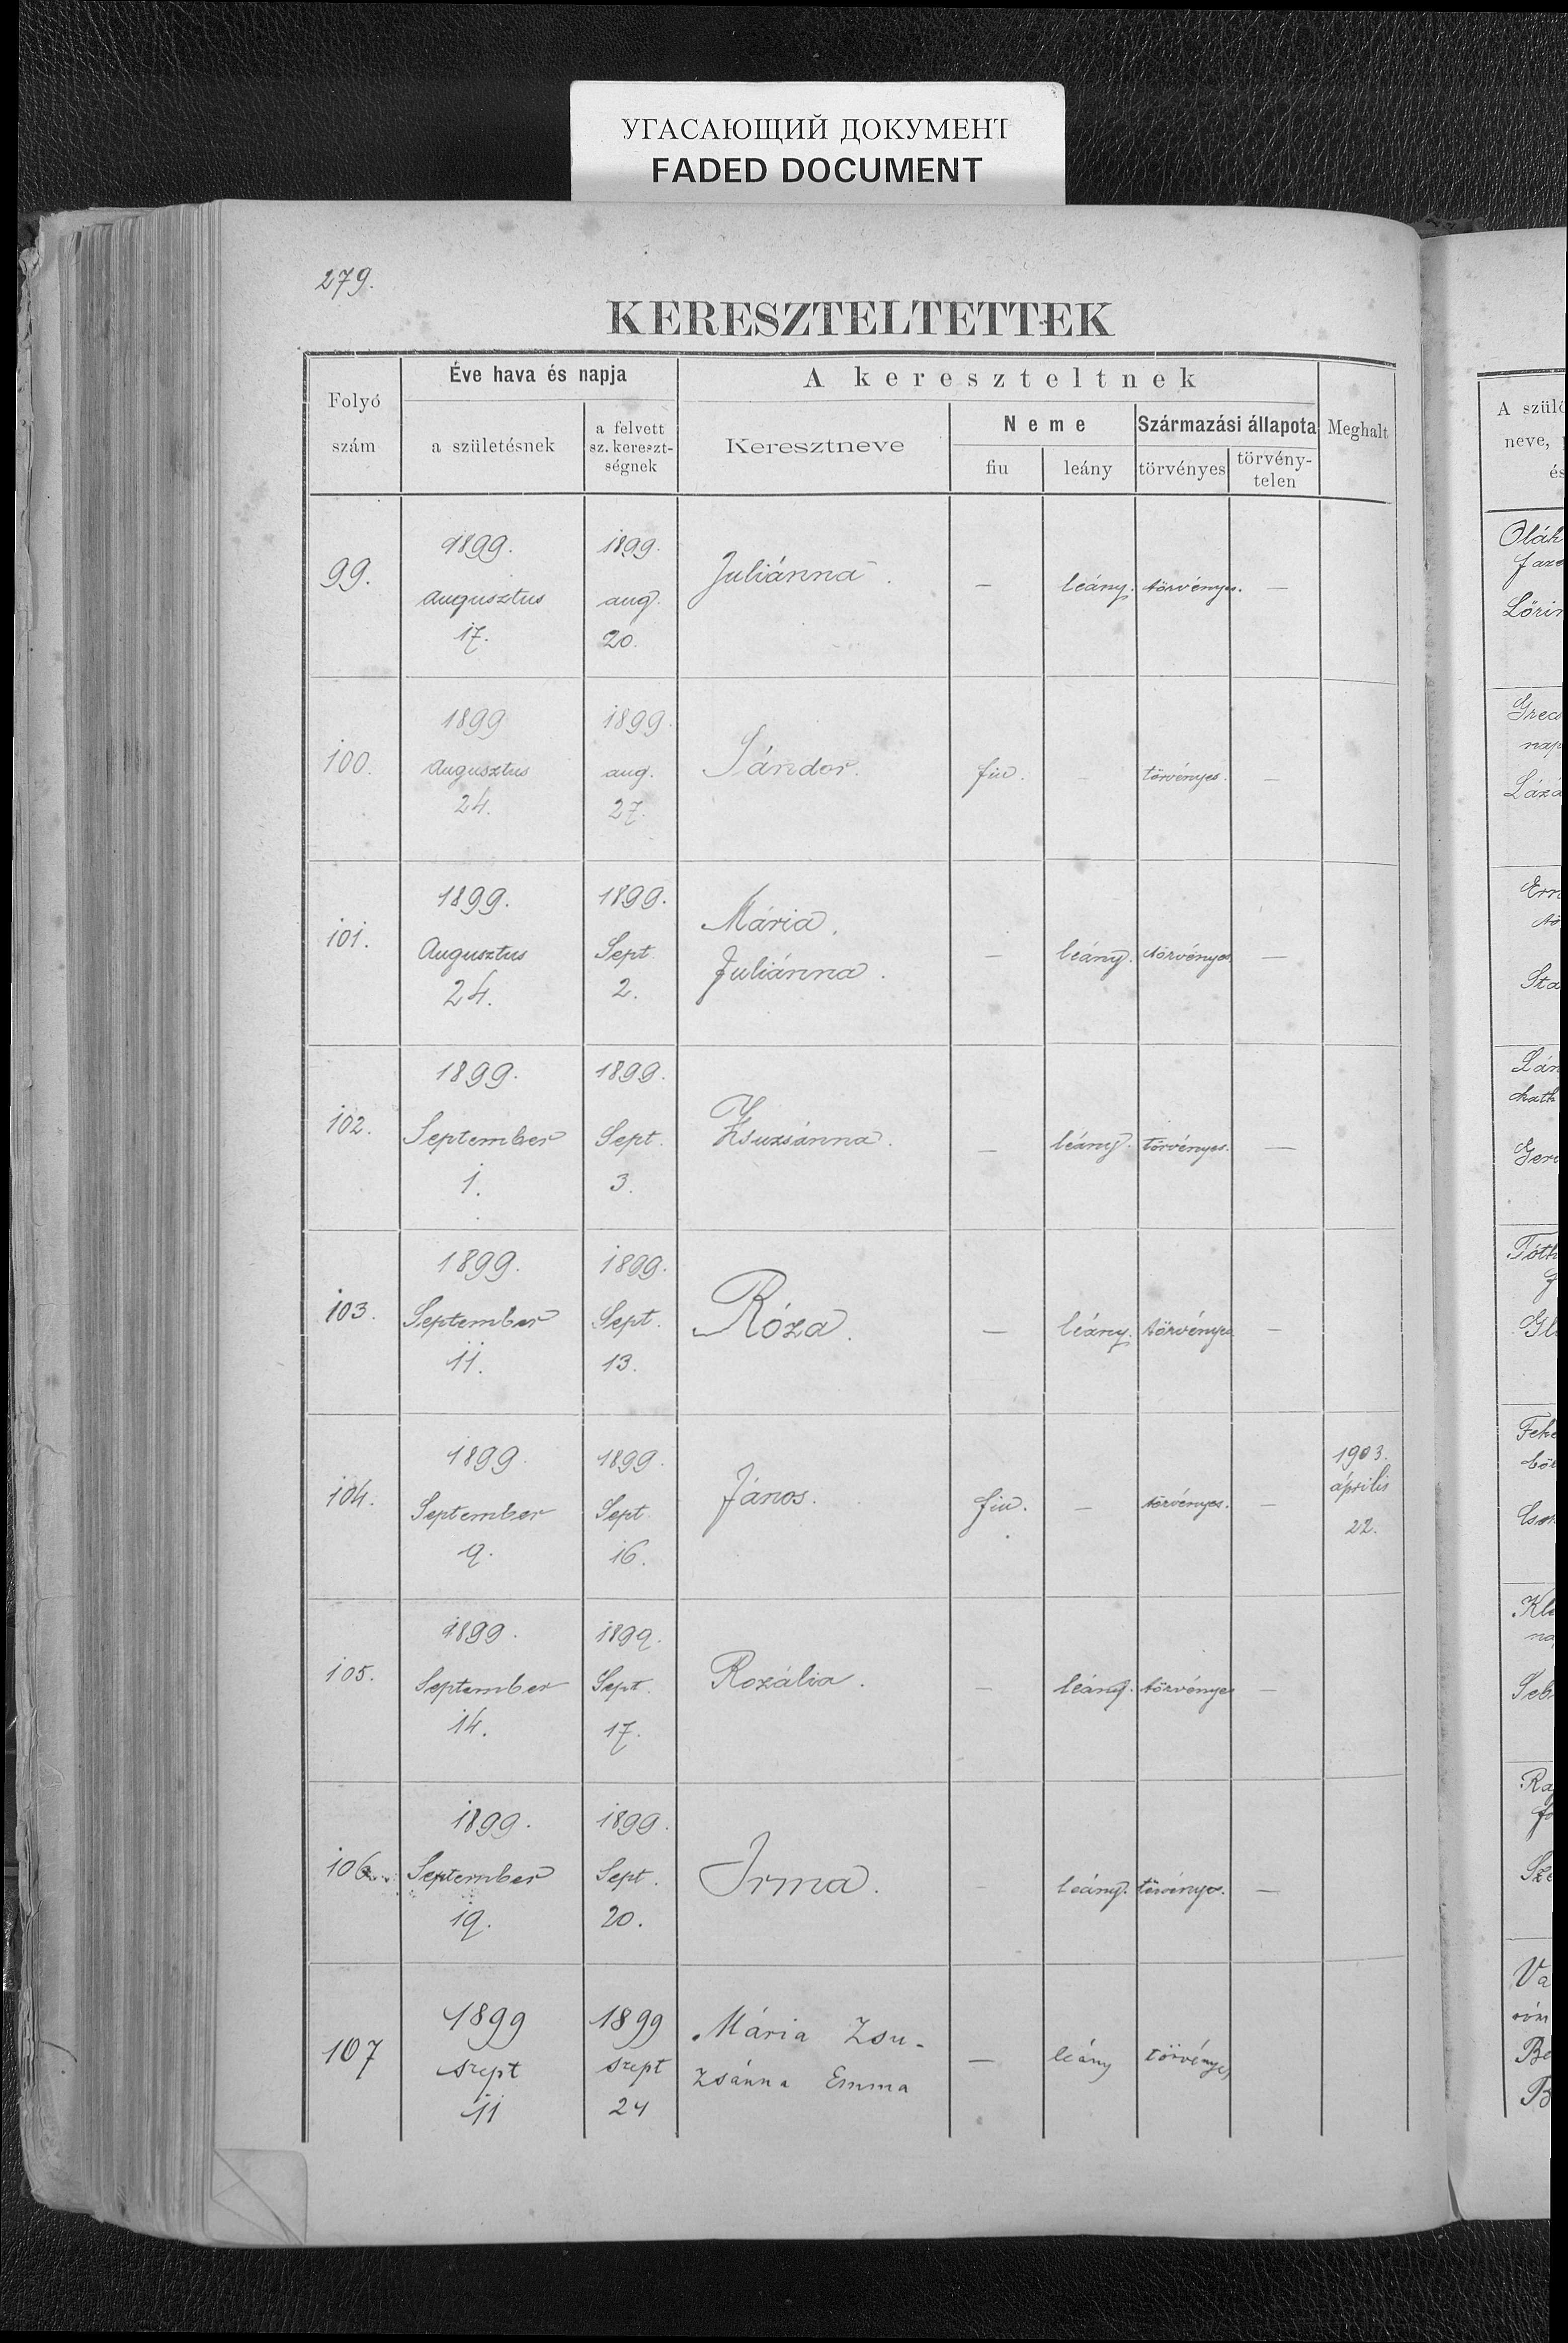 УГАСАЮЩИЙ ДОКУМЕНТ
FADED DOCUMENT
279.
KERESZTELTETTEK
Folyó szám
Éve hava és napja
a születésnek
a felvett sz. kereszt-ségnek
A kereszteltnek
Keresztneve
Neme
fiu
leány
Származási állapota
törvényes
törvény-telen
Meghalt
99.
1899. Augusztus 17.
1899. aug. 20.
Juliánna.
— leány. törvényes. —
100.
1899 Augusztus 24.
1899. aug. 27.
Sándor.
fiu. — törvényes. —
101.
1899. Augusztus 24.
1899. Sept. 2.
Mária.
Juliánna.
— leány. törvényes —
102.
1899. September 1.
1899. Sept. 3.
Zsuzsánna.
— leány. törvényes. —
103.
1899. September 11.
1899. Sept. 13.
Róza.
— leány. törvényes —
104.
1899. September 9.
1899. Sept. 16.
János.
fiu. — törvényes. —
1903. április 22.
105.
1899. September 14.
1899. Sept. 17.
Rozália.
— leány. törvényes —
106.
1899. September 19.
1899. Sept. 20.
Irma.
— leány. törvényes. —
107
1899 szept 11
1899 szept 24
Mária Zsu-
zsánna Emma
— leány törvényes
A szülő
neve,
és
Oláh
Lőrin
Grecs
nap
Láza
Sta
Tóth
Gl
Fehé
Kle
na
Seb
Ra
Sze
Va
Be
B